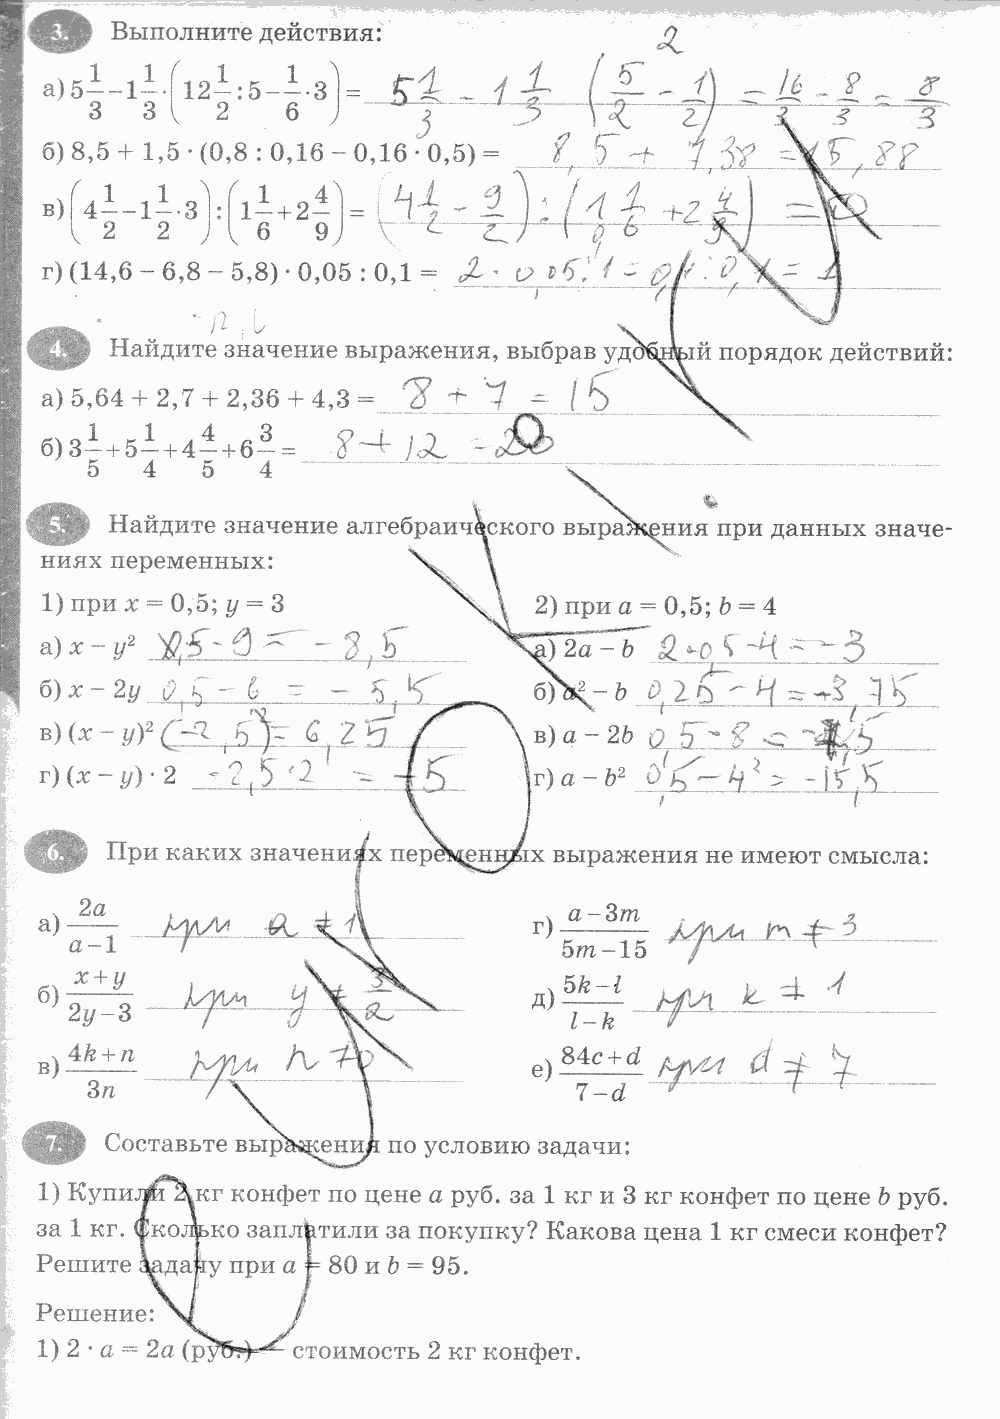 3. Выполните действия:
2
а) 5 1/3 − 1 1/3 · (12 1/2 : 5 − 1/6 · 3) = 5 1/3 − 1 1/3 (5/2 − 1/2) = 16/3 − 8/3 = 8/3
б) 8,5 + 1,5 · (0,8 : 0,16 − 0,16 · 0,5) = 8,5 + 7,38 = 15,88
в) (4 1/2 − 1 1/2 · 3) : (1 1/6 + 2 4/9) = (4 1/2 − 9/2) : (1 1/6 + 2 4/9) = 0
г) (14,6 − 6,8 − 5,8) · 0,05 : 0,1 = 2 · 0,05 : 1 = 0,1 : 0,1 = 1
4. Найдите значение выражения, выбрав удобный порядок действий:
а) 5,64 + 2,7 + 2,36 + 4,3 = 8 + 7 = 15
б) 3 1/5 + 5 1/4 + 4 4/5 + 6 3/4 = 8 + 12 = 20
5. Найдите значение алгебраического выражения при данных значе-
ниях переменных:
1) при x = 0,5; y = 3
а) x − y² 0,5 − 9 = − 8,5
б) x − 2y 0,5 − 6 = − 5,5
в) (x − y)² (−2,5)² = 6,25
г) (x − y) · 2 −2,5 · 2 = −5
2) при a = 0,5; b = 4
а) 2a − b 2 · 0,5 − 4 = −3
б) a² − b 0,25 − 4 = −3,75
в) a − 2b 0,5 − 8 = −7,5
г) a − b² 0,5 − 4² = −15,5
6. При каких значениях переменных выражения не имеют смысла:
а) 2a/(a − 1) при a ≠ 1
б) (x + y)/(2y − 3) при y ≠ 3/2
в) (4k + n)/3n при n ≠ 0
г) (a − 3m)/(5m − 15) при m ≠ 3
д) (5k − l)/(l − k) при k ≠ 1
е) (84c + d)/(7 − d) при d ≠ 7
7. Составьте выражения по условию задачи:
1) Купили 2 кг конфет по цене a руб. за 1 кг и 3 кг конфет по цене b руб.
за 1 кг. Сколько заплатили за покупку? Какова цена 1 кг смеси конфет?
Решите задачу при a = 80 и b = 95.
Решение:
1) 2 · a = 2a (руб.) — стоимость 2 кг конфет.